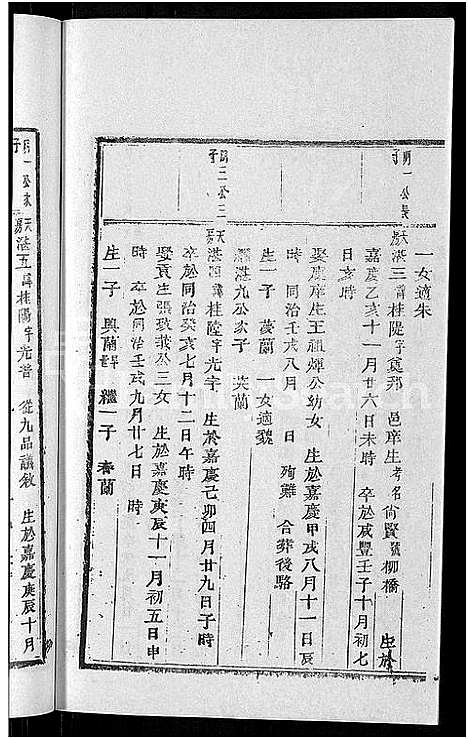 一女適朱
明一公長子
湛三諱桂隄字奠邦 邑庠生考名尚賢號柳橋 生於
嘉慶乙亥十一月廿六日未時 卒於咸豐壬子十月初七
日亥時
娶慶庠生王祖煇公幼女 生於嘉慶甲戌八月十一日辰
時 同治壬戌八月 日 殉難 合葬後駱
生一子 菱蘭 一女適魏
繼湛九公次子 芙蘭
明三公三子
湛四諱桂陞字光宇 生於嘉慶己卯四月廿九日子時
卒於同治癸亥七月十二日午時
娶袁生張公三女 生於嘉慶庚辰十一月初五日申
時 卒於同治壬戌九月廿七日 時
生一子 興蘭 繼一子 春蘭
明一公次子
湛五諱桂陽字光普 從九品議敘 生於嘉慶庚辰十月